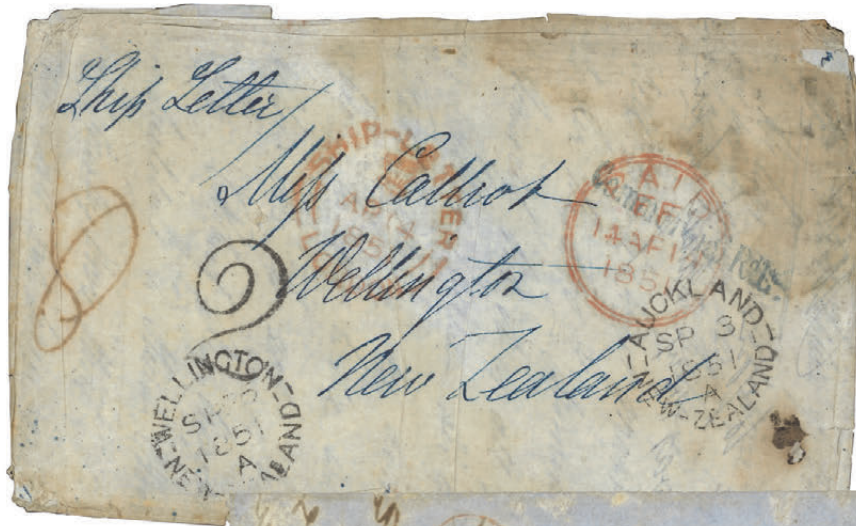 Ship Letter
Miss Calliot
Wellington
New Zealand
8
2
SHIP-LETTER
AP14
1851
PAID
EF
14AP14
1851
AUCKLAND
SP 3
1851
A
NEW-ZEALAND
WELLINGTON
SP
1851
A
NEW-ZEALAND